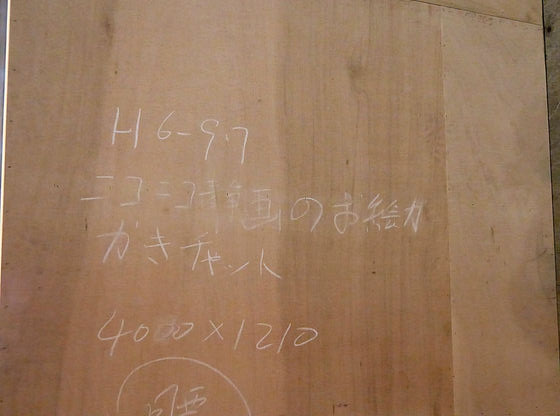 H6-9.7
ニコニコ静画のお絵カ
がきチャット
4000×1210